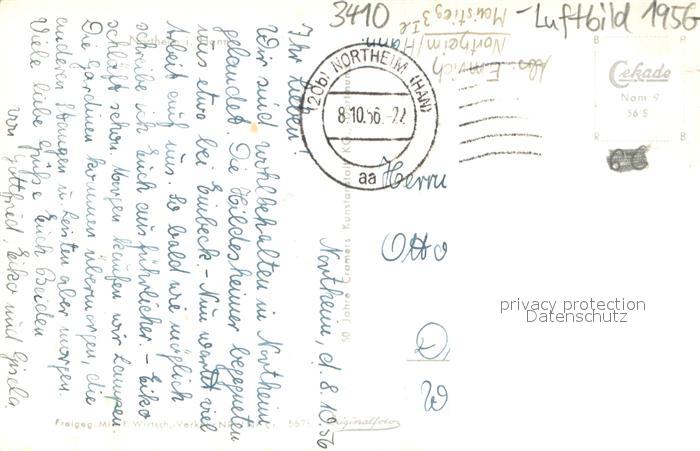 3410 -Luftbild 1956
Northeim, d. 8.10.56
Ihr Lieben!
Wir sind wohlbehalten in Northeim
gelandet. Die Hildesheimer begegneten
uns etwa bei Einbeck. - Nun wartet viel
Arbeit auf uns. So bald wie möglich
schreibe ich Euch ausführlicher. - Eiko
schläft schon. Morgen kaufen wir Lampen.
Die Gardinen kommen übermorgen, die
anderen Stangen u. Leisten aber morgen.
Viele liebe Grüße Euch Beiden
von Gottfried, Eiko und Gisela.
Emmrich
Northeim/Hann.
(20b) NORTHEIM (HAN)
8.10.56.-22
aa
Herrn
Otto
Cekade
Nom 9
56/5
B
B
R
R
50 Jahre Cramers Kunstanstalt KG., Dortmund
Originalfoto
privacy protection
Datenschutz